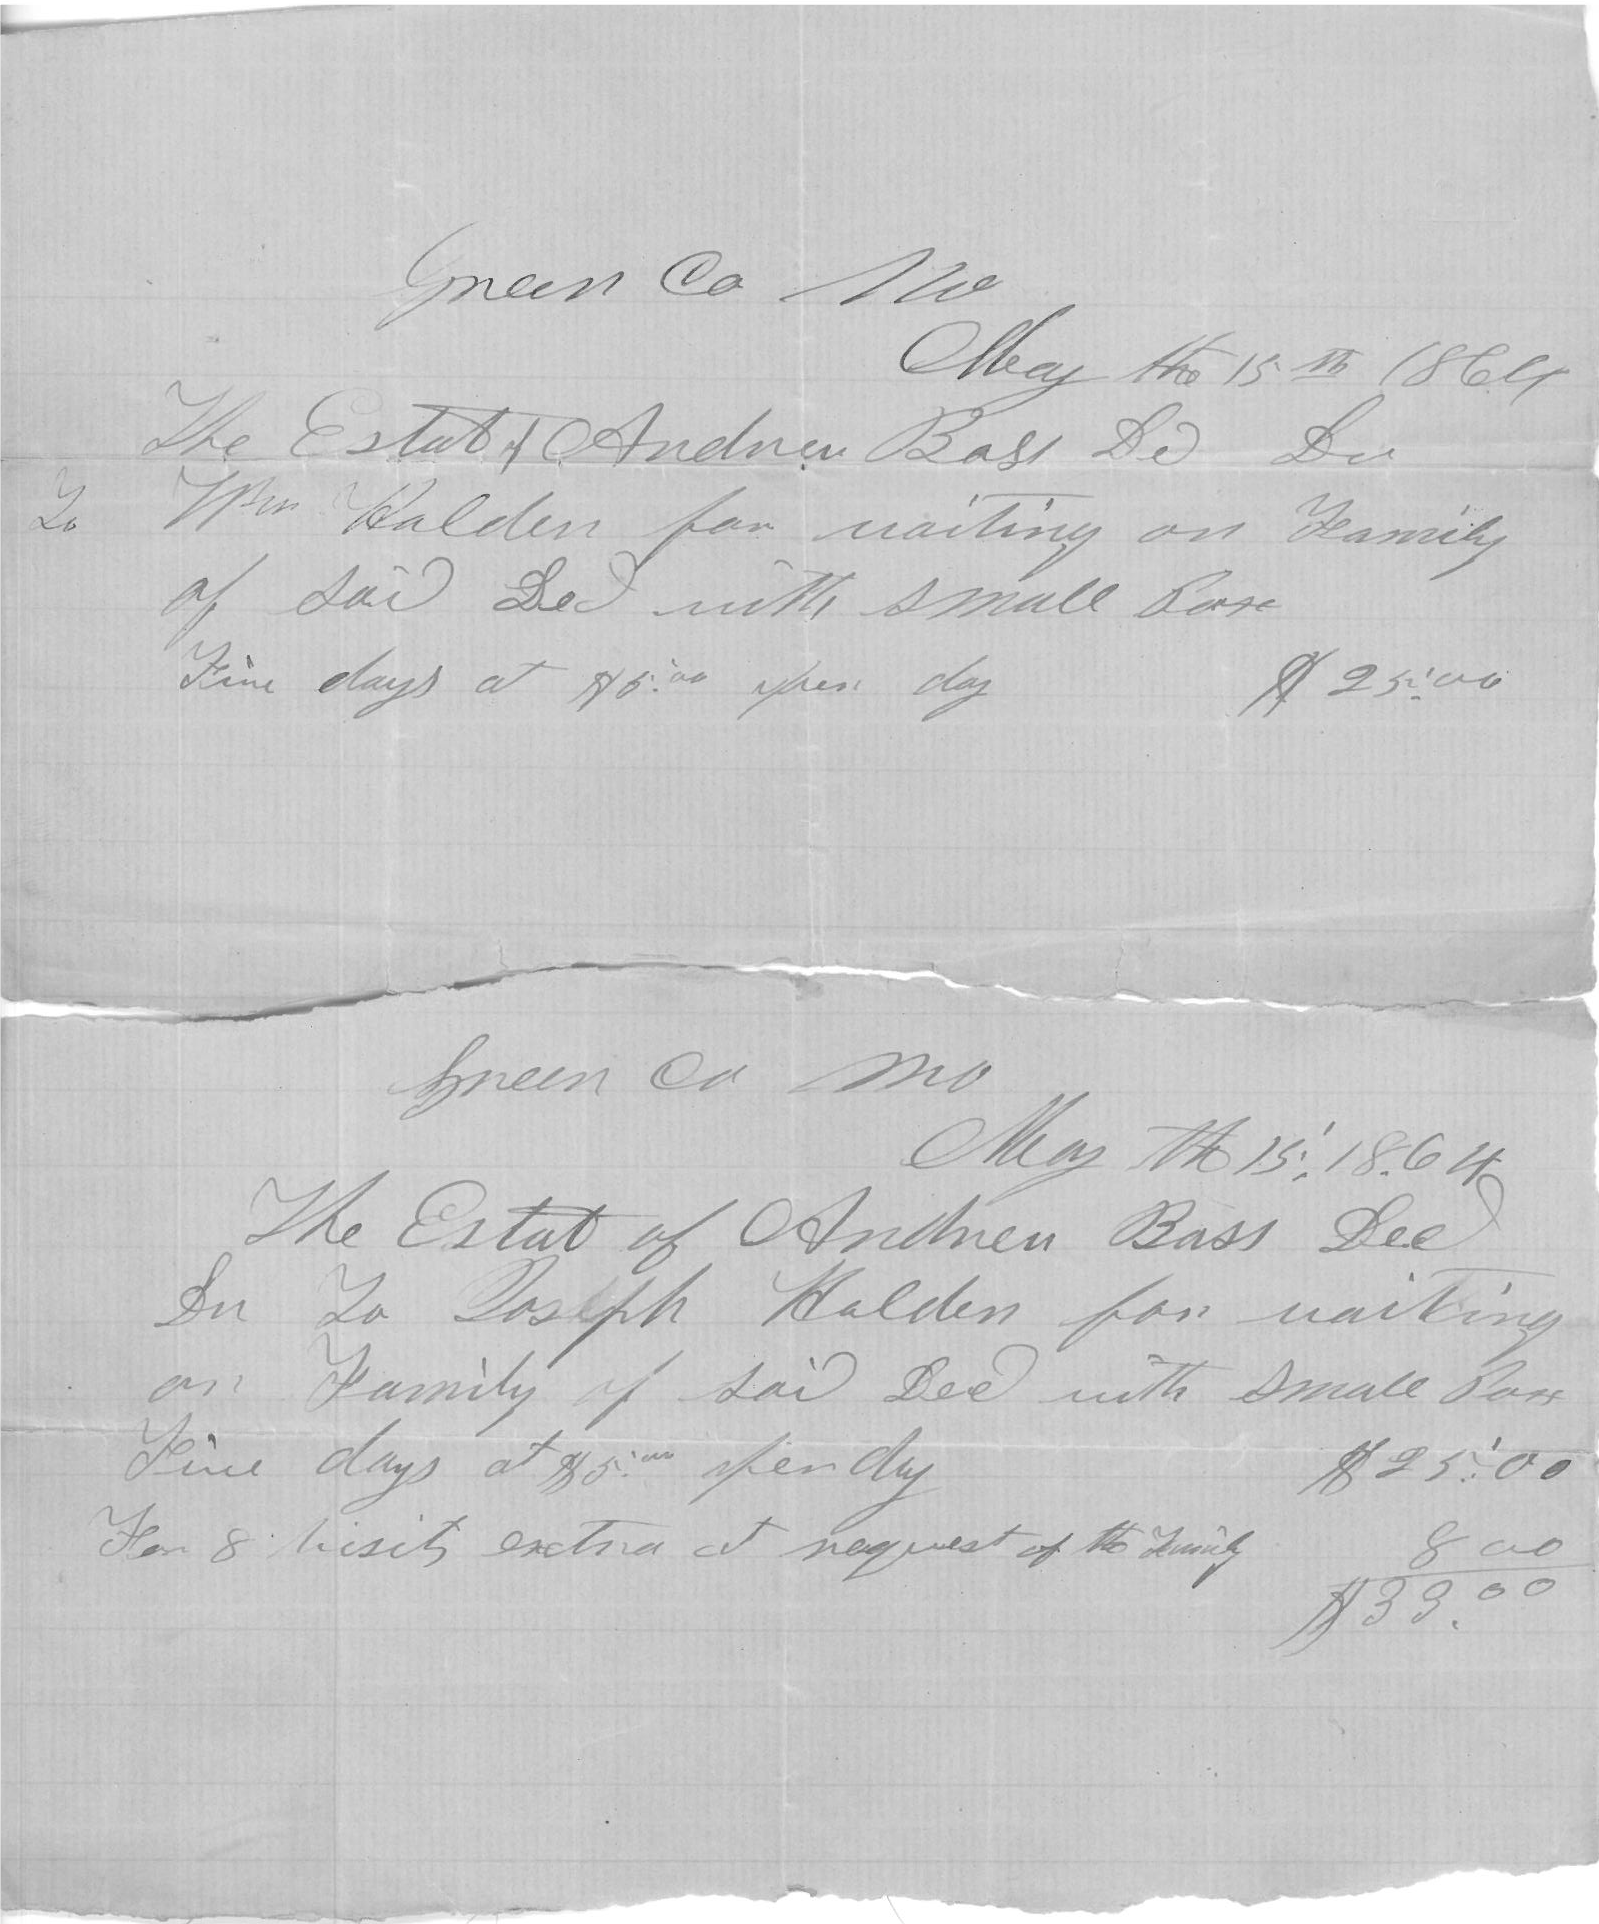 Green Co Mo
May the 15th 1864
The Estat of Andrew Bass Dd Dr
To Wm Halden for waiting on Family
of said Ded with small Pox
Five days at $5.00 per day $25.00
Green Co Mo
May the 15, 1864
The Estat of Andrew Bass Ded
Dr To Joseph Halden for waiting
on Family of said Ded with small Pox
Five days at $5.00 per day $25.00
For 8 visits extra at request of the Family 8 00
$33.00